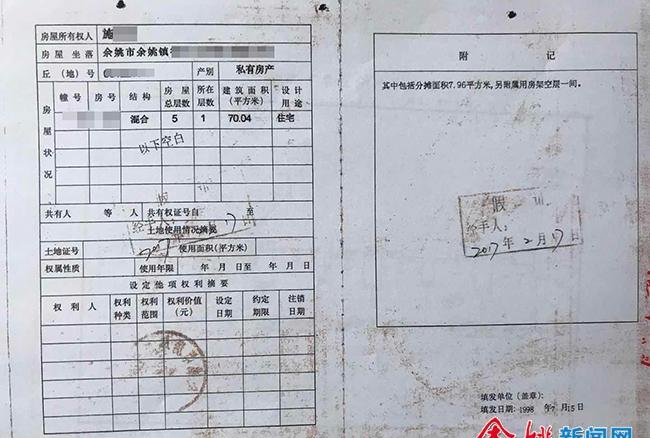 房屋所有权人 施
房屋坐落 余姚市余姚镇
丘（地）号 产别 私有房产
房屋状况
幢号 房号 结构 房屋总层数 所在层数 建筑面积（平方米） 设计用途
混合 5 1 70.04 住宅
以下空白
共有人 等 人 共有权证号自 至
土地使用情况摘要
土地证号 使用面积（平方米）
权属性质 使用年限 年 月 日至 年 月 日
设定他项权利摘要
权利人 权利种类 权利范围 权利价值（元） 设定日期 约定期限 注销日期
假
经手人：
2017
附记
其中包括分摊面积7.96平方米，另附属用房架空层一间。
假
经手人：
2017年2月17日
填发单位（盖章）：
填发日期：1998 年7月15日
余姚新闻网